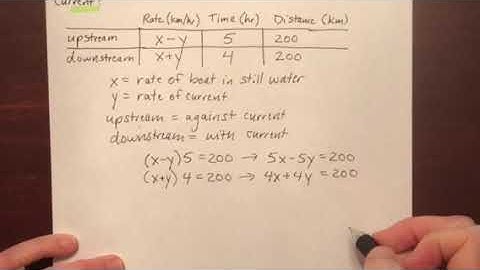 Current?
Rate (km/hr) Time (hr) Distance (km)
upstream x-y 5 200
downstream x+y 4 200
x = rate of boat in still water
y = rate of current
upstream = against current
downstream = with current
(x-y)5 = 200 → 5x-5y = 200
(x+y)4 = 200 → 4x+4y = 200